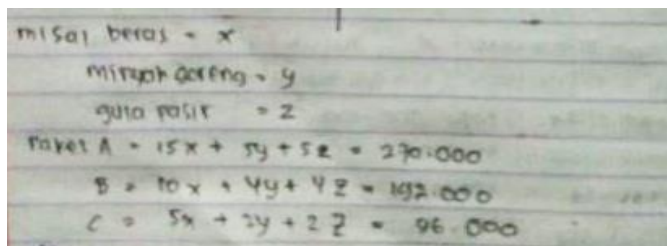 misal beras = x
minyak goreng = y
gula pasir = z
Paket A = 15x + 5y + 5z = 270.000
B = 10x + 4y + 4z = 192.000
C = 5x + 2y + 2z = 96.000